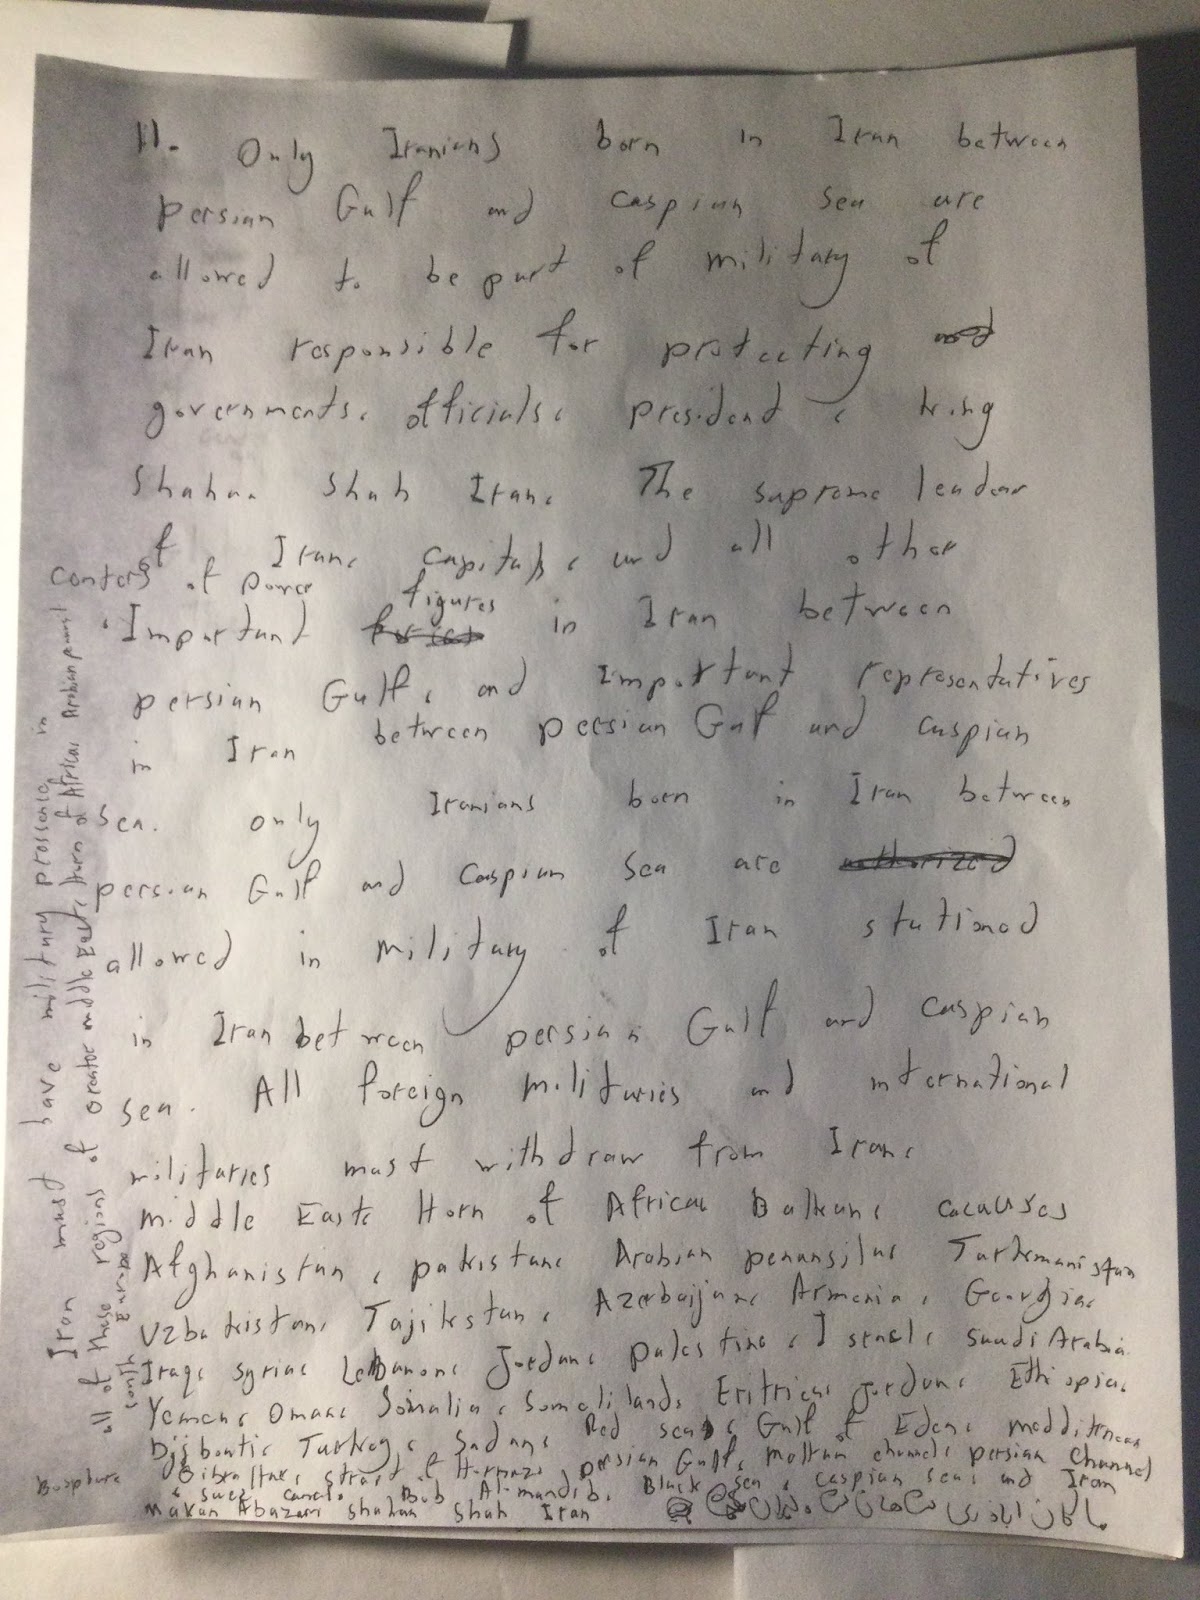 11. Only Iranians born in Iran between
persian Gulf and caspian sea are
allowed to be part of military of
Iran responsible for protecting
governments, officials, president, king
Shahan Shah Iran, The supreme leader
of Iran, capitals, and all other
centers of power figures
Important in Iran between
persian Gulf, and important representatives
in Iran between persian Gulf and caspian
sea. only Iranians born in Iran between
persian Gulf and caspian sea are
allowed in military of Iran stationed
in Iran between persian Gulf and caspian
sea. All foreign militaries and international
militaries must withdraw from Iran,
middle East, Horn of Africa, Balkan, cacauses
Afghanistan, pakistan, Arabian penansilas Turkmanistan
Uzbakistan, Tajikstan, Azerbaijan, Armenia, Georgia,
Iraq, syria, Lebanon, Jordan, palestine, Israel, saudi Arabia
Yemen, Oman, Somalia, Somaliland, Eritrica, Jordan, Ethiopia,
Djiboutic Turkey, Sudan, Red sea, Gulf of Eden, medditrean
Gibraltar, strait of Hormuz, persian Gulf, channel, persian channel
Bosphure, suez canal, Bab Al-mandib, Black sea, caspian sea, and Iron
makan Abazari shahan shah Iran ماکان اباذری
Iran must have military presence in
all of these regions of Greater middle East, Horn of Africa, Arabian
south Europe